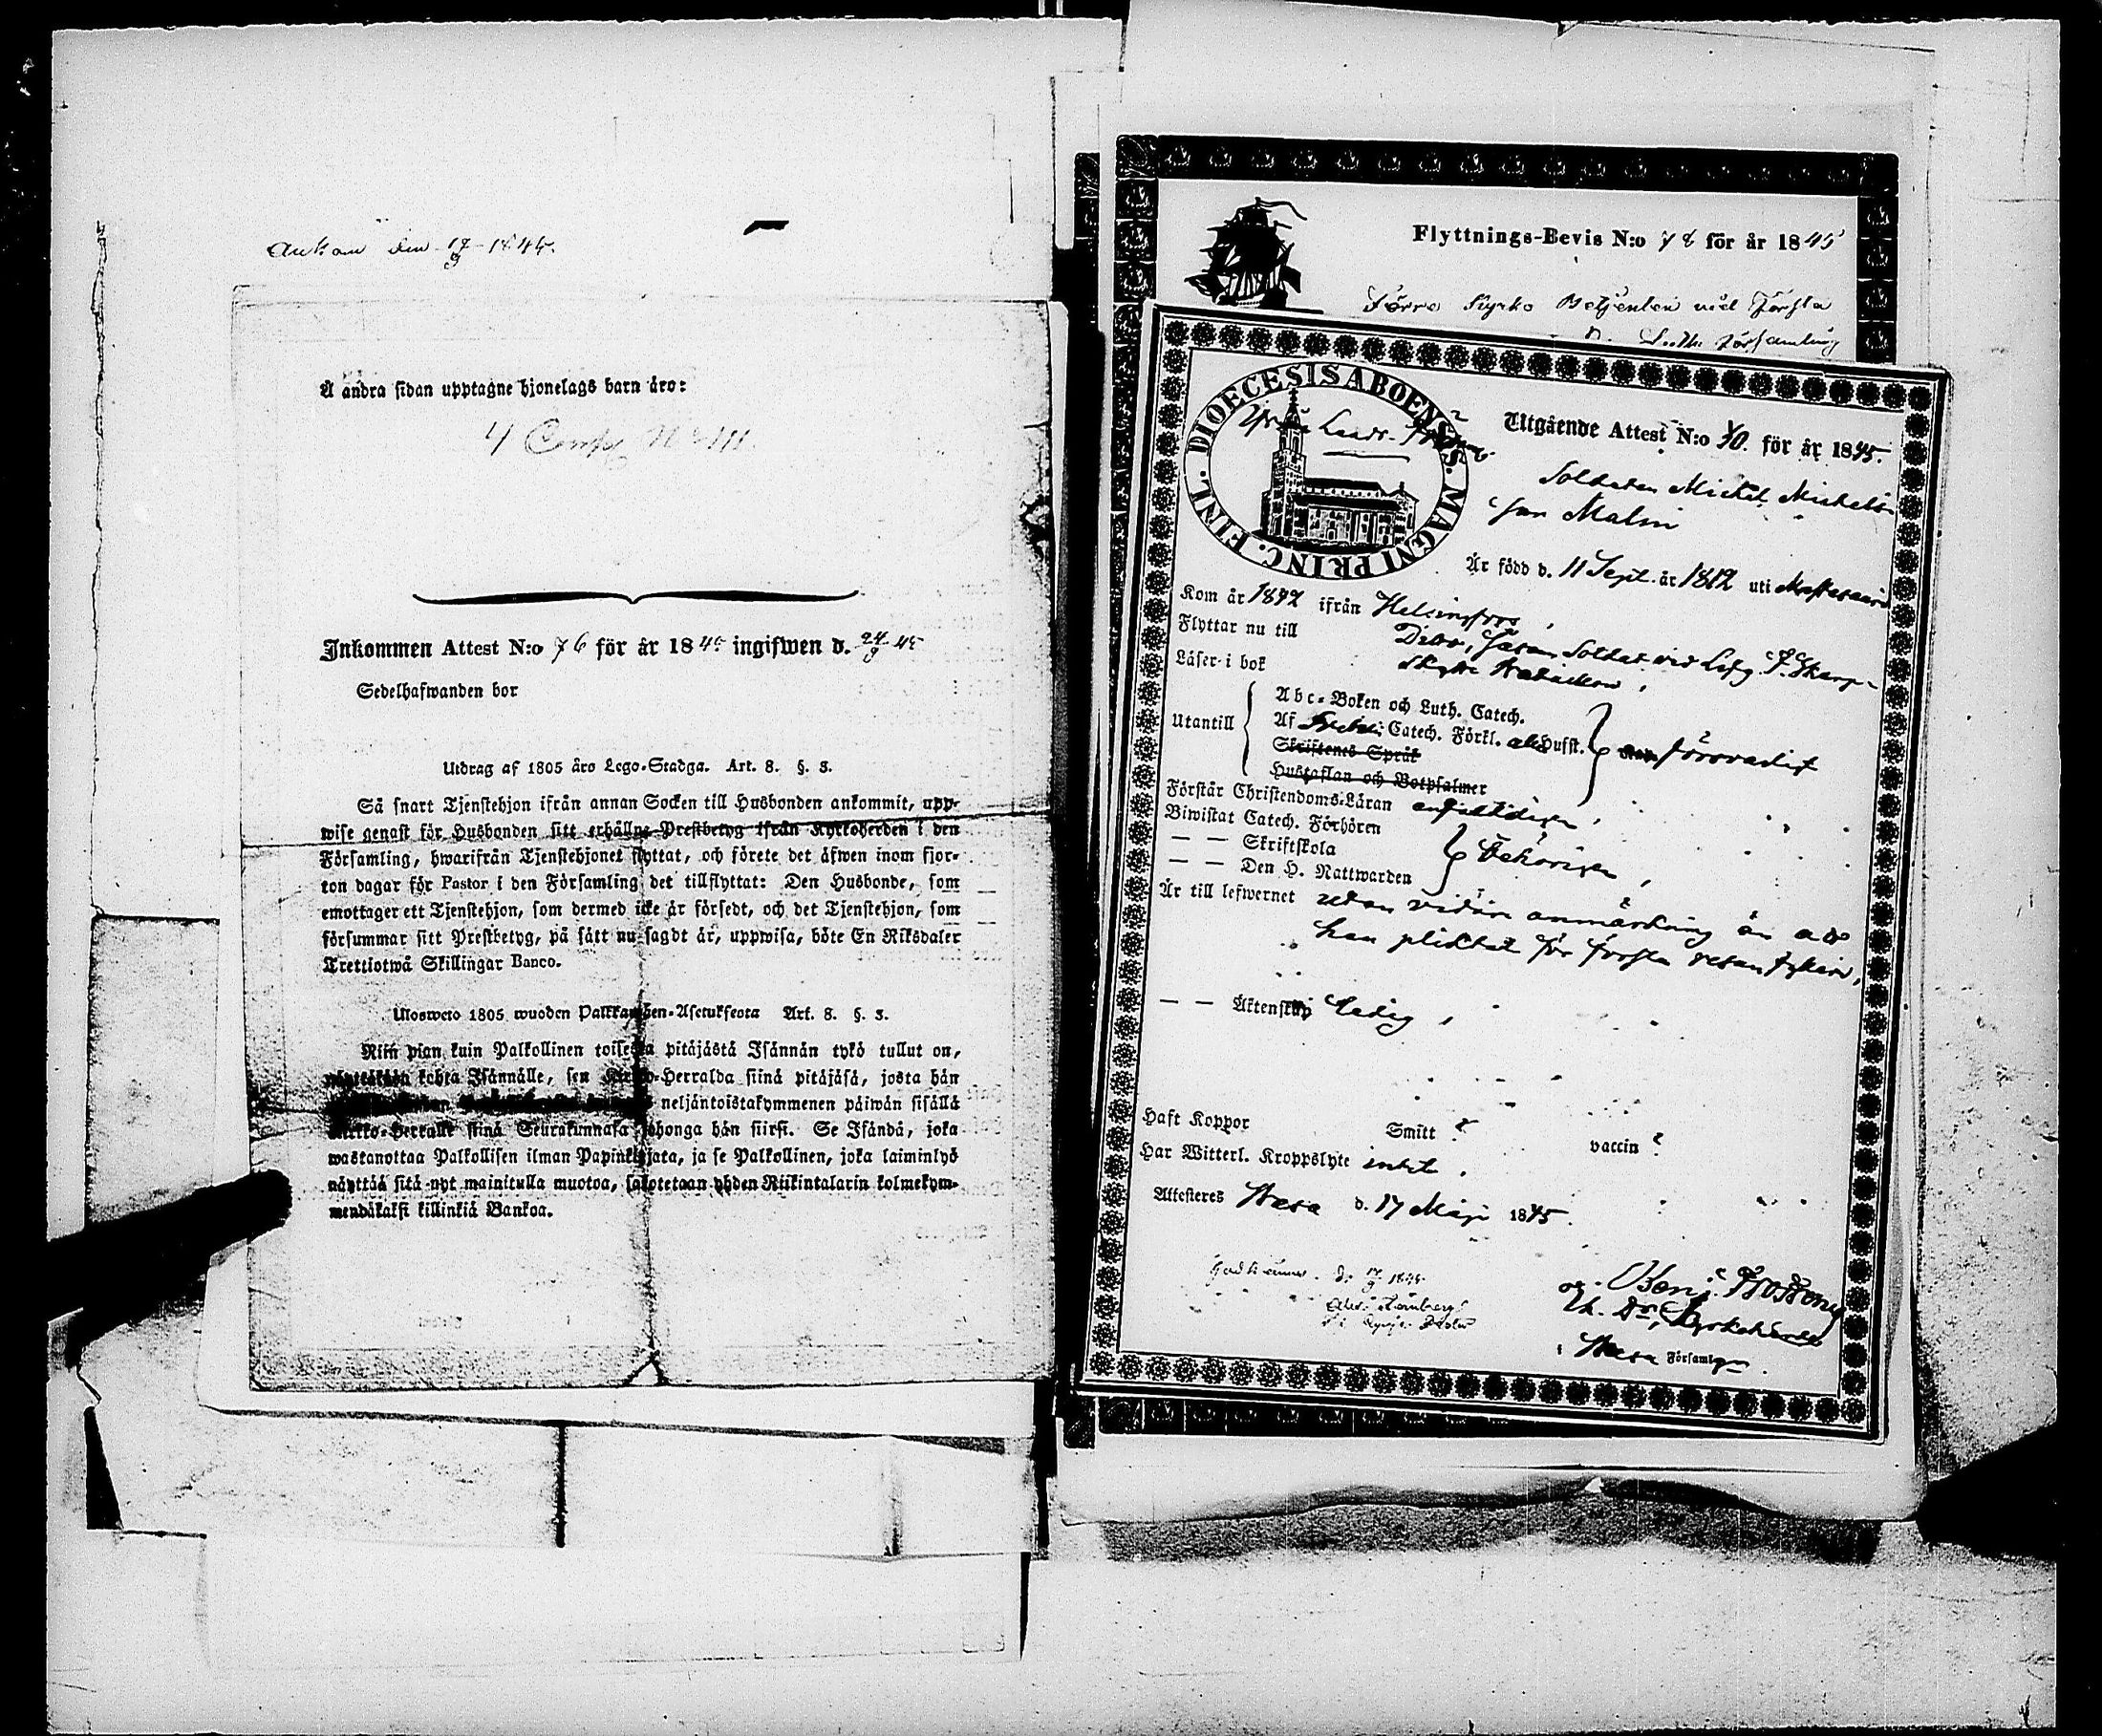 Ankom den 17/9 1845.
Å andra sidan upptagne hjonelags barn äro:
4 Comp N:o 111.
Inkommen Attest N:o 76 för år 1845 ingifwen d. 24/9 45
Sedelhafwanden bor
Utdrag af 1805 års Lego-Stadga. Art. 8. §. 3.
Så snart Tjenstehjon ifrån annan Socken till Husbonden ankommit, upp-
wise genast för Husbonden sitt erhållne Prestbetyg ifrån Kyrkoherden i den
Församling, hwarifrån Tjenstehjonet flyttat, och förete det äfwen inom fjor-
ton dagar för Pastor i den Församling det tillflyttat: Den Husbonde, som
emottager ett Tjenstehjon, som dermed icke är försedt, och det Tjenstehjon, som
försummar sitt Prestbetyg, på sätt nu sagdt är, uppwisa, böte En Riksdaler
Trettiotwå Skillingar Banco.
Ulosweto 1805 wuoden Palkkawäen-Asetuksesta Art. 8. §. 3.
Niin pian kuin Palkollinen toisesta pitäjästä Isännän tykö tullut on,
kohta Isännälle, sen Kirkko-Herralda siinä pitäjäsä, josta hän
neljäntoistakymmenen päiwän sisällä
Kirkko-Herralle siinä Seurakunnasa johonga hän siirsi. Se Isändä, joka
wastanottaa Palkollisen ilman Papinkirjata, ja se Palkollinen, joka laiminlyö
näyttää sitä nyt mainitulla muotoa, sakotetaan yhden Riikintalarin kolmekym-
mendäkaksi killinkiä Bankoa.
Flyttnings-Bevis N:o 78 för år 1845
Förre Kyrko Betjenten vid Första
Luth. Församling
DIOECESIS ABOENS. MAGNI PRINC. FINL.
Utgående Attest N:o 10. för år 1845.
Soldaten Michel Michels-
son Malm
Är född d. 11 Sept. år 1812 uti
Kom år 1842 ifrån Helsingfors,
Flyttar nu till
Soldat vid Lifg. F. Skarp-
Läser i bok
skytte Bataillon,
Abc-Boken och Luth. Catech.
Utantill
Af Catech. Förkl. Husst.
försvarligt
Skriftenes Språk
Hustaflan och Botpsalmer
Förstår Christendoms-Läran
Biwistat Catech. Förhören
— — Skriftskola
behörigen,
— — Den H. Nattwarden
Är till lefwernet utan vidare anmärkning än att
han pliktat för första resan
— — Äktenskap Ledig,
Haft Koppor Smitt ? vaccin ?
Har Witterl. Kroppslyte intet.
Attesteres Wasa d. 17 Maji 1845.
Godkännes. d. 17/9 1845
Benj. Frosterus
Th. Dr, Kyrkoherde
i Wasa Församlgn.